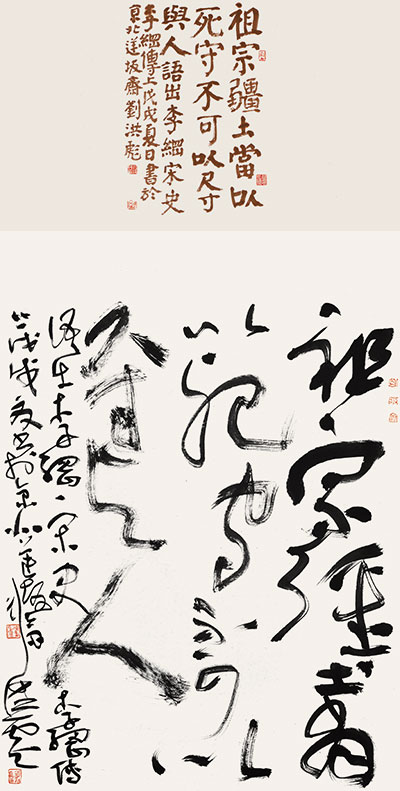 祖宗疆土當以
死守不可以尺寸
與人語出李綱宋史
李綱傳上戊戌夏日書於
京北蓮坂齋劉洪彪
祖宗疆土當
以死守不可以
尺寸与人
語出李綱宋史李綱傳
上戊戌夏書於京北蓮坂齋洪彪